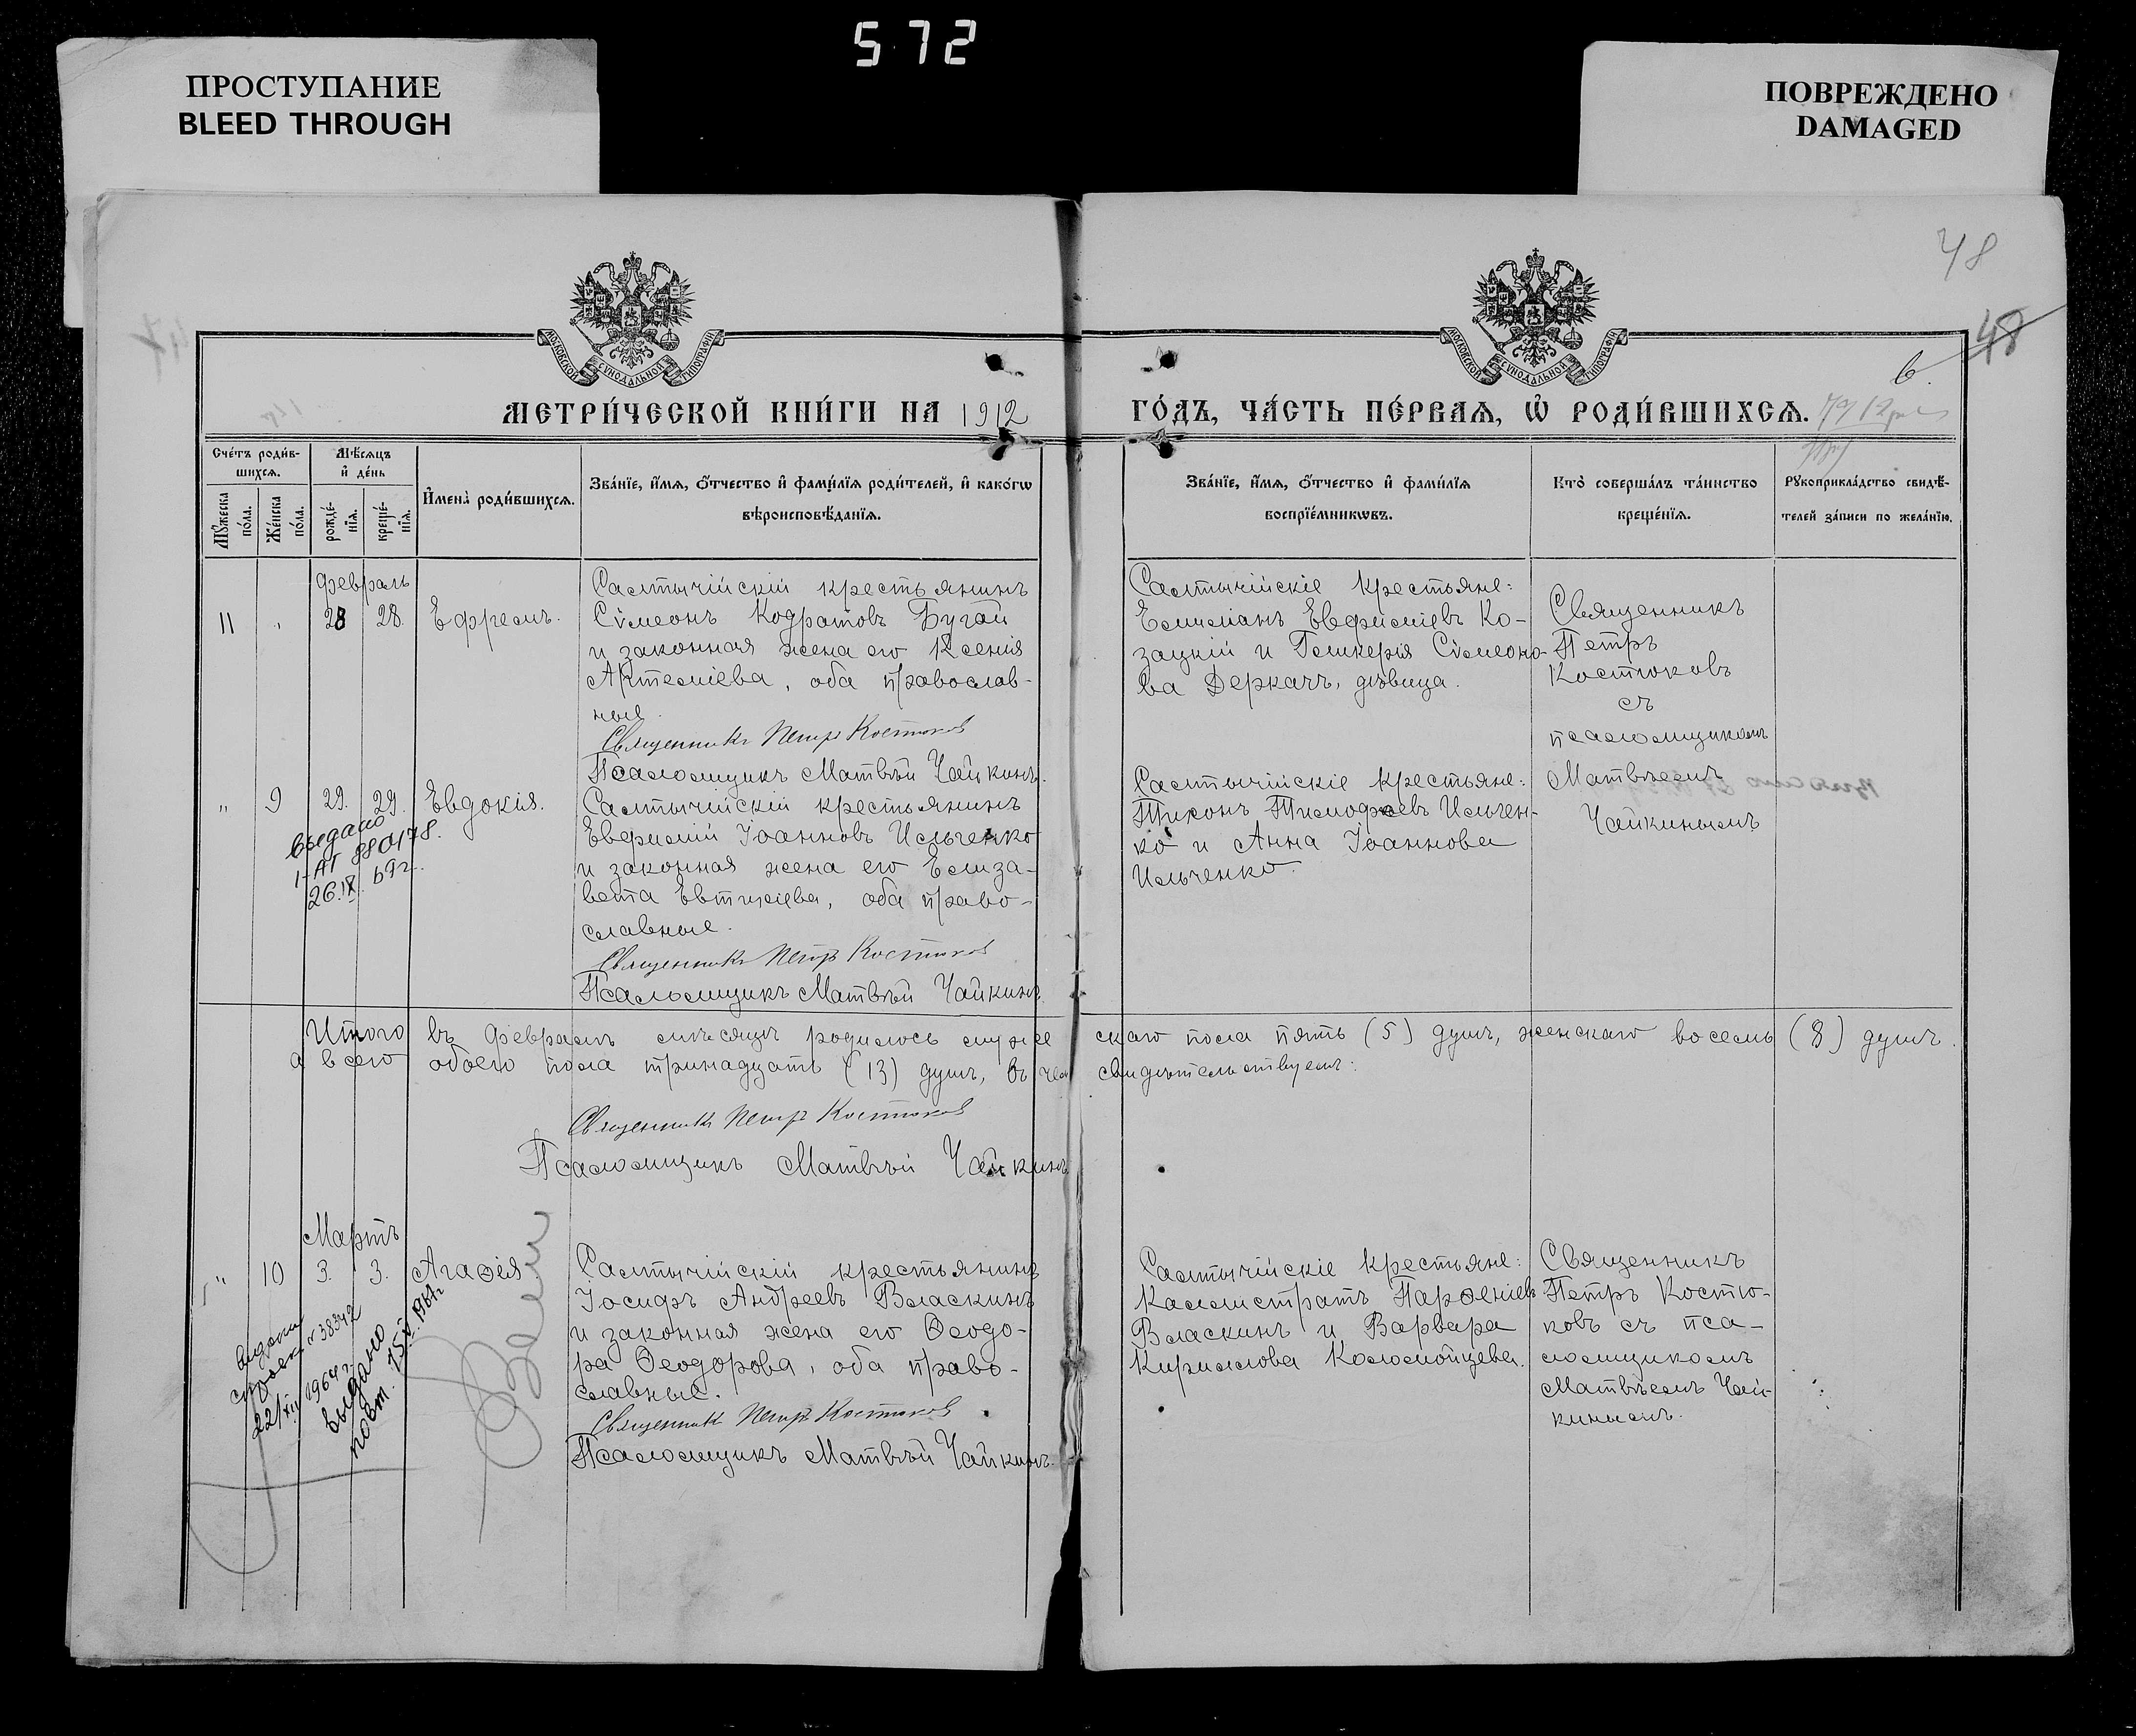 572
ПРОСТУПАНИЕ
BLEED THROUGH
ПОВРЕЖДЕНО
DAMAGED
48
48
6.
МОСКОВСКОЙ СѴНОДАЛЬНОЙ ТИПОГРАФІИ
МОСКОВСКОЙ СѴНОДАЛЬНОЙ ТИПОГРАФІИ
МЕТРИ́ЧЕСКОЙ КНИ́ГИ НА 1912 ГО́ДЪ, ЧА́СТЬ ПЕ́РВАЯ, Ѡ РОДИ́ВШИХСЯ.
Сче́тъ роди́в-
шихся.
Мꙋ́жеска по́ла.
Же́нска по́ла.
Мѣ́сяцъ
и҆ де́нь
рожде́-
нїя.
креще́-
нїя.
И҆мена̀ роди́вшихся.
Зва́нїе, и҆́мя, ѻ҆́тчество и҆ фами́лїя роди́телей, и҆ како́гѡ
вѣроисповѣ́данїя.
Зва́нїе, и҆́мя, ѻ҆́тчество и҆ фами́лїя
воспрїе́мникѡвъ.
Кто̀ соверша́лъ та́инство
креще́нїя.
Рꙋкоприкла́дство свидѣ́-
телей за́писи по жела́нїю.
Февраль
11 " 28 28. Ефремъ.
Салтычійскій крестьянинъ
Сѵмеонъ Кодратовъ Бугай
и законная жена его Ксенія
Артеміева, оба православ-
ные.
Священникъ Петръ Костюковъ
Псаломщикъ Матвѣй Чайкинъ.
Салтычійскіе крестьяне:
Емиліанъ Евфиміевъ Ко-
зацкій и Гликерія Сѵмеоно-
ва Деркачъ, дѣвица.
Священникъ
Петръ
Костюковъ
съ
псаломщикомъ
Матвѣемъ
Чайкинымъ
" 9 29. 29. Евдокія.
Выдано
I-АП 880178.
26.IX. 69г.
Салтычійскій крестьянинъ
Евфимій Іоанновъ Ильченко
и законная жена его Елиза-
вета Евтихіева, оба право-
славные.
Священникъ Петръ Костюковъ
Псаломщикъ Матвѣй Чайкинъ.
Салтычійскіе крестьяне:
Тихонъ Тимофеевъ Ильчен-
ко и Анна Іоаннова
Ильченко.
Итого въ Февралѣ мѣсяцѣ родилось мужескаго пола пять (5) душъ, женскаго восемь (8) душъ.
а всего обоего пола тринадцать (13) душъ, въ чемъ свидѣтельствуемъ:
Священникъ Петръ Костюковъ
Псаломщикъ Матвѣй Чайкинъ
Мартъ
" 10 3. 3. Агаѳія
Салтычійскій крестьянинъ
Іосифъ Андреевъ Власкинъ
и законная жена его Ѳеодо-
ра Ѳеодорова, оба право-
славные.
Священникъ Петръ Костюковъ
Псаломщикъ Матвѣй Чайкинъ.
Салтычійскіе крестьяне:
Каллистратъ Парѳеніевъ
Власкинъ и Варвара
Кириллова Коломойцева.
Священникъ
Петръ Костю-
ковъ съ пса-
ломщикомъ
Матвѣемъ Чай-
кинымъ.
N 38342
22/XII 1964 г.
Выдано
повт. 15.V.196